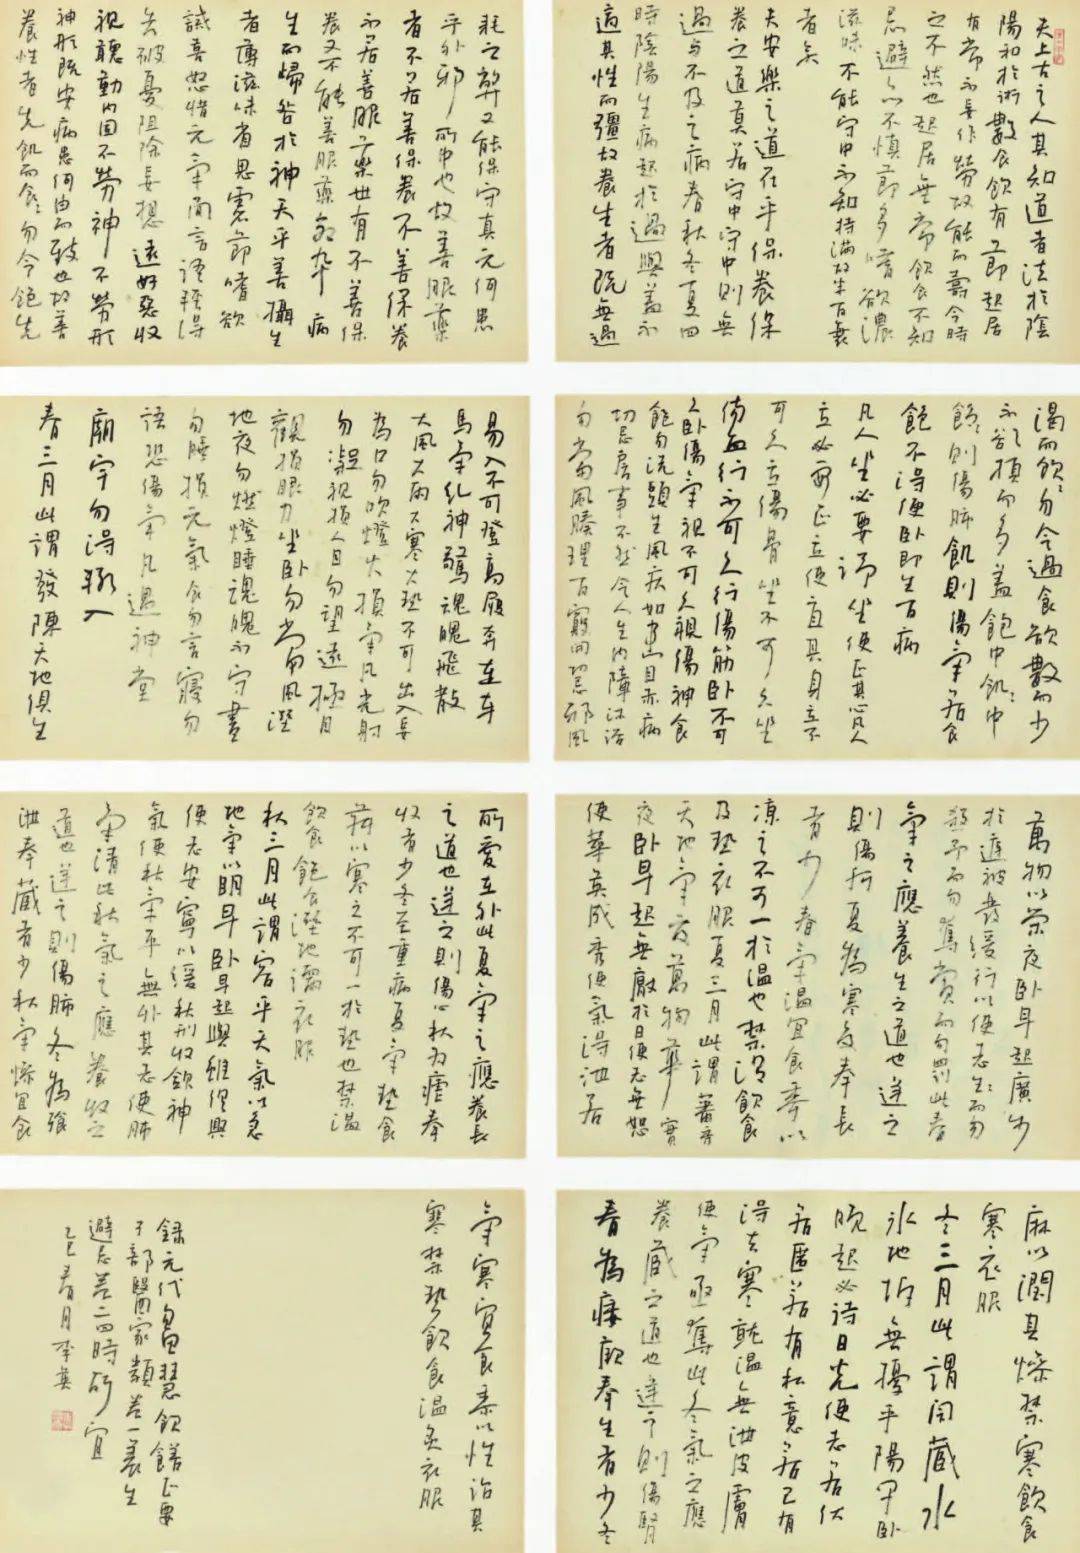 夫上古之人其知道者法於陰
陽和於術數食飲有節起居
有常不妄作勞故能而壽今時
之不然也起居無常飲食不知
忌避亦不慎節多嗜欲濃
滋味不能守中不知持滿故半百衰
者矣
夫安樂之道在乎保養保
養之道莫若守中守中則無
過與不及之病春秋冬夏四
時陰陽生病起於過與蓋不
適其性而彊故養生者既無過
耗之弊又能保守真元何患
乎外邪所中也故善服藥
者不若善保養不善保養
不若善服藥世有不善保
養又不能善服藥倉卒病
生而歸咎於神天乎善攝生
者薄滋味省思慮節嗜欲
誡喜怒惜元氣簡言語輕得
失破憂阻除妄想遠好惡收
視聽勤內固不勞神不勞形
神形既安病患何由而致也故善
養性者先飢而食食勿令飽先
渴而飲飲勿令過食欲數而少
不欲頓而多蓋飽中飢飢中
飽飽則傷肺飢則傷氣若食
飽不得便臥即生百病
凡人坐必要端坐使正其心凡人
立必要正立使直其身立不
可久立傷骨坐不可久坐
傷血行不可久行傷筋臥不可
久臥傷氣視不可久視傷神食
飽勿洗頭生風疾如患目赤病
切忌房事不然令人生內障沐浴
勿當風腠理百竅開忌邪風
易入不可登高履奔走車
馬氣亂神驚魂魄飛散
大風大雨大寒大熱不可出入妄
為口勿吹燈火損氣凡光射
勿凝視損人目勿望遠極目
觀損眼力坐臥勿當風溼
地夜勿燃燈睡魂魄不守晝
勿睡損元氣食勿言寢勿
語恐傷氣凡遇神堂
廟宇勿得輒入
春三月此謂發陳天地俱生
萬物以榮夜臥早起廣步
於庭被髮緩行以使志生生而勿
殺予而勿奪賞而勿罰此春
氣之應養生之道也逆之
則傷肝夏為寒變奉長
者少春氣溫宜食麥以
涼之不可一於溫也禁溫飲食
及熱衣服夏三月此謂蕃秀
天地氣交萬物華實
夜臥早起無厭於日使志無怒
使華英成秀使氣得泄若
所愛在外此夏氣之應養長
之道也逆之則傷心秋為瘧奉
收者少冬至重病夏氣熱食
菽以寒之不可一於熱也禁溫
飲食飽食溼地濡衣服
秋三月此謂容平天氣以急
地氣以明早臥早起與雞俱興
使志安寧以緩秋刑收斂神
氣使秋氣平無外其志使肺
氣清此秋氣之應養收之
道也逆之則傷肺冬為飧
泄奉藏者少秋氣燥宜食
麻以潤其燥禁寒飲食
寒衣服
冬三月此謂閉藏水
冰地坼無擾乎陽早臥
晚起必待日光使志若伏
若匿若有私意若已有
得去寒就溫無泄皮膚
使氣亟奪此冬氣之應
養藏之道也逆之則傷腎
春為痿厥奉生者少冬
氣寒宜食黍以性治其
寒禁熱飲食溫炙衣服
錄元代忽思慧飲饍正要
子部醫家類卷一養生
避忌卷二四時所宜
乙巳春月李英